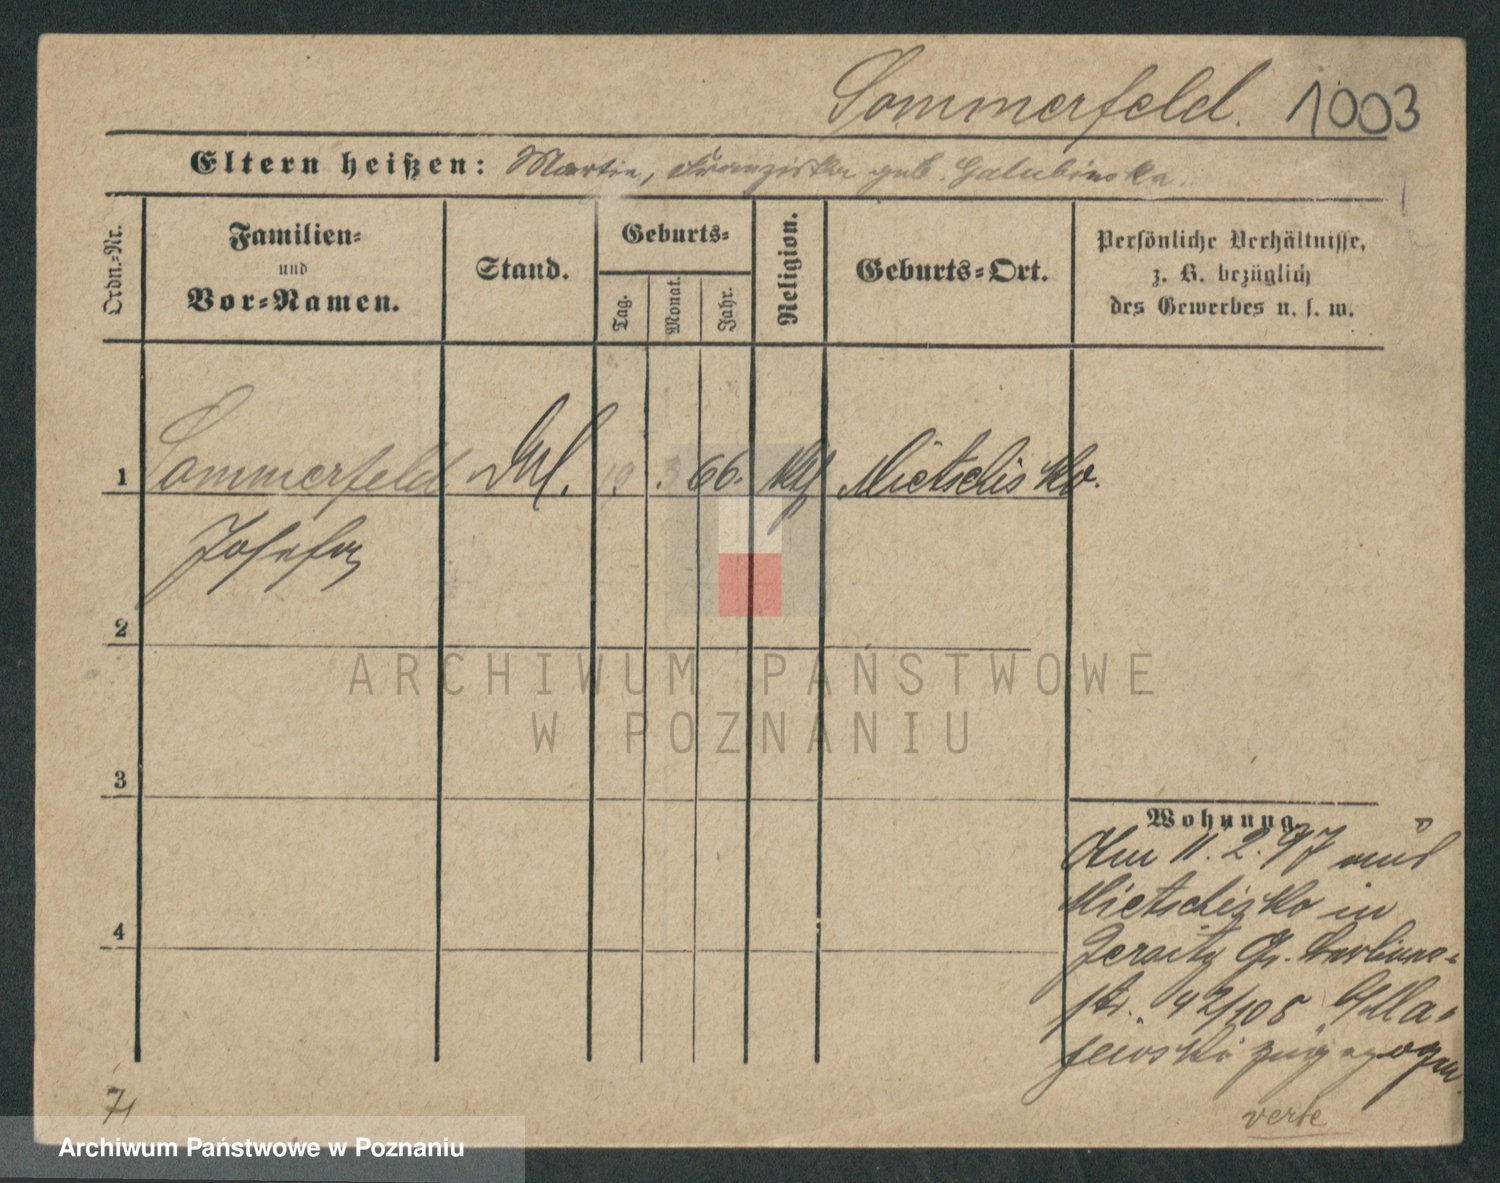 Sommerfeld. 1003
Eltern heißen: Martin, Franziska geb. Galubinska
Ordn.-Nr.
Familien-
und
Vor-Namen.
Stand.
Geburts-
Tag.
Monat.
Jahr.
Religion.
Geburts-Ort.
Persönliche Verhältnisse,
z. B. bezüglich
des Gewerbes u. s. w.
1 Sommerfeld 19. 3. 66. kth Mietschisko.
Josefa
2
3
4
Wohnung.
Am 11. 2. 97 aus
Mietschisko in
Jersitz Gr. Berliner-
str. 42/
zugezogen.
verte
ARCHIWUM PAŃSTWOWE
W POZNANIU
Archiwum Państwowe w Poznaniu